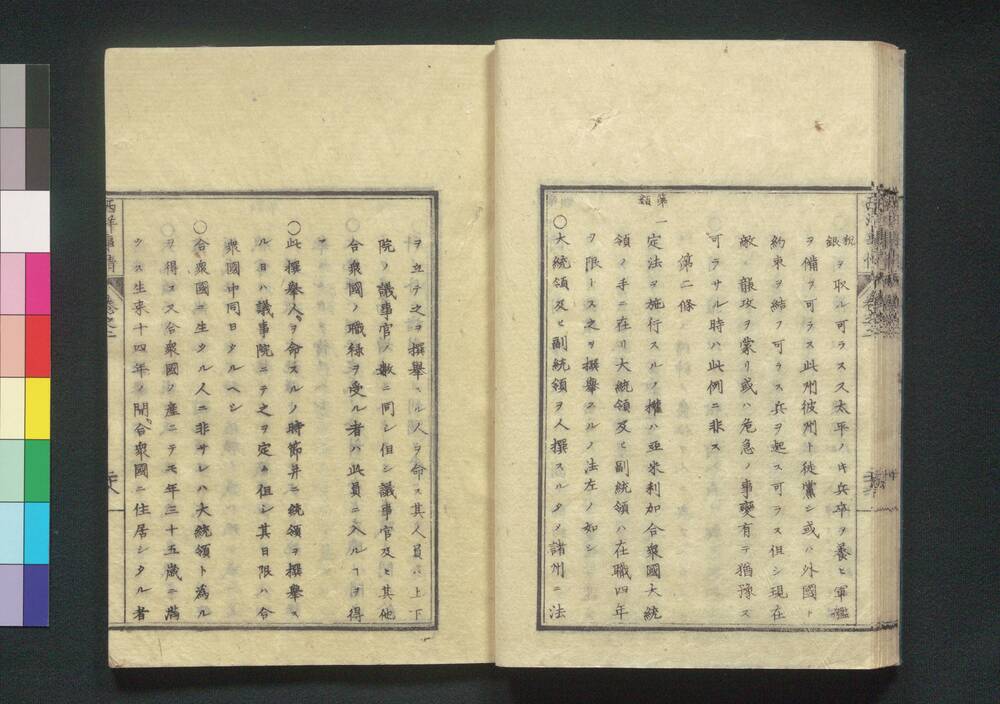 税
銀ヲ取ル可ラスス太平ノ時兵卒ヲ養ヒ軍艦
ヲ備フ可ラス此州彼州ト徒黨シ或ハ外國ト
約束ヲ結フ可ラス兵ヲ起ス可ラス但シ現在
敵ノ襲攻ヲ蒙リ或ハ危急ノ事變有テ猶豫ス
可ラサル時ハ此例ニ非ス
第二條
第一
類
定法ヲ施行スルノ權ハ亞米利加合衆國大統
領ノ手ニ在リ大統領及ヒ副統領ハ在職四年
ヲ限トス之ヲ撰擧スルノ法左ノ如シ
〇大統領及ヒ副統領ヲ人撰スル爲メ諸州ニ法
ヲ立テ之ヲ撰擧スル人ヲ命ス其人員ハ上下
院ノ議事官ノ數ニ同シ但シ議事官及ヒ其他
合衆國ノ職祿ヲ受ル者ハ此員ニ入ルヿヲ得
ス
〇此撰擧人ヲ命スルノ時節并ニ統領ヲ撰擧ス
ル日ハ議事院ニテ之ヲ定ム但シ其日限ハ合
衆國中同日タルヘシ
〇合衆國ニ生タル人ニ非サレハ大統領ト爲ル
ヲ得ス合衆國ノ産ニテモ年三十五歳ニ滿
タス生来十四年ノ間合衆國ニ住居シタル者
西洋事情 卷之二